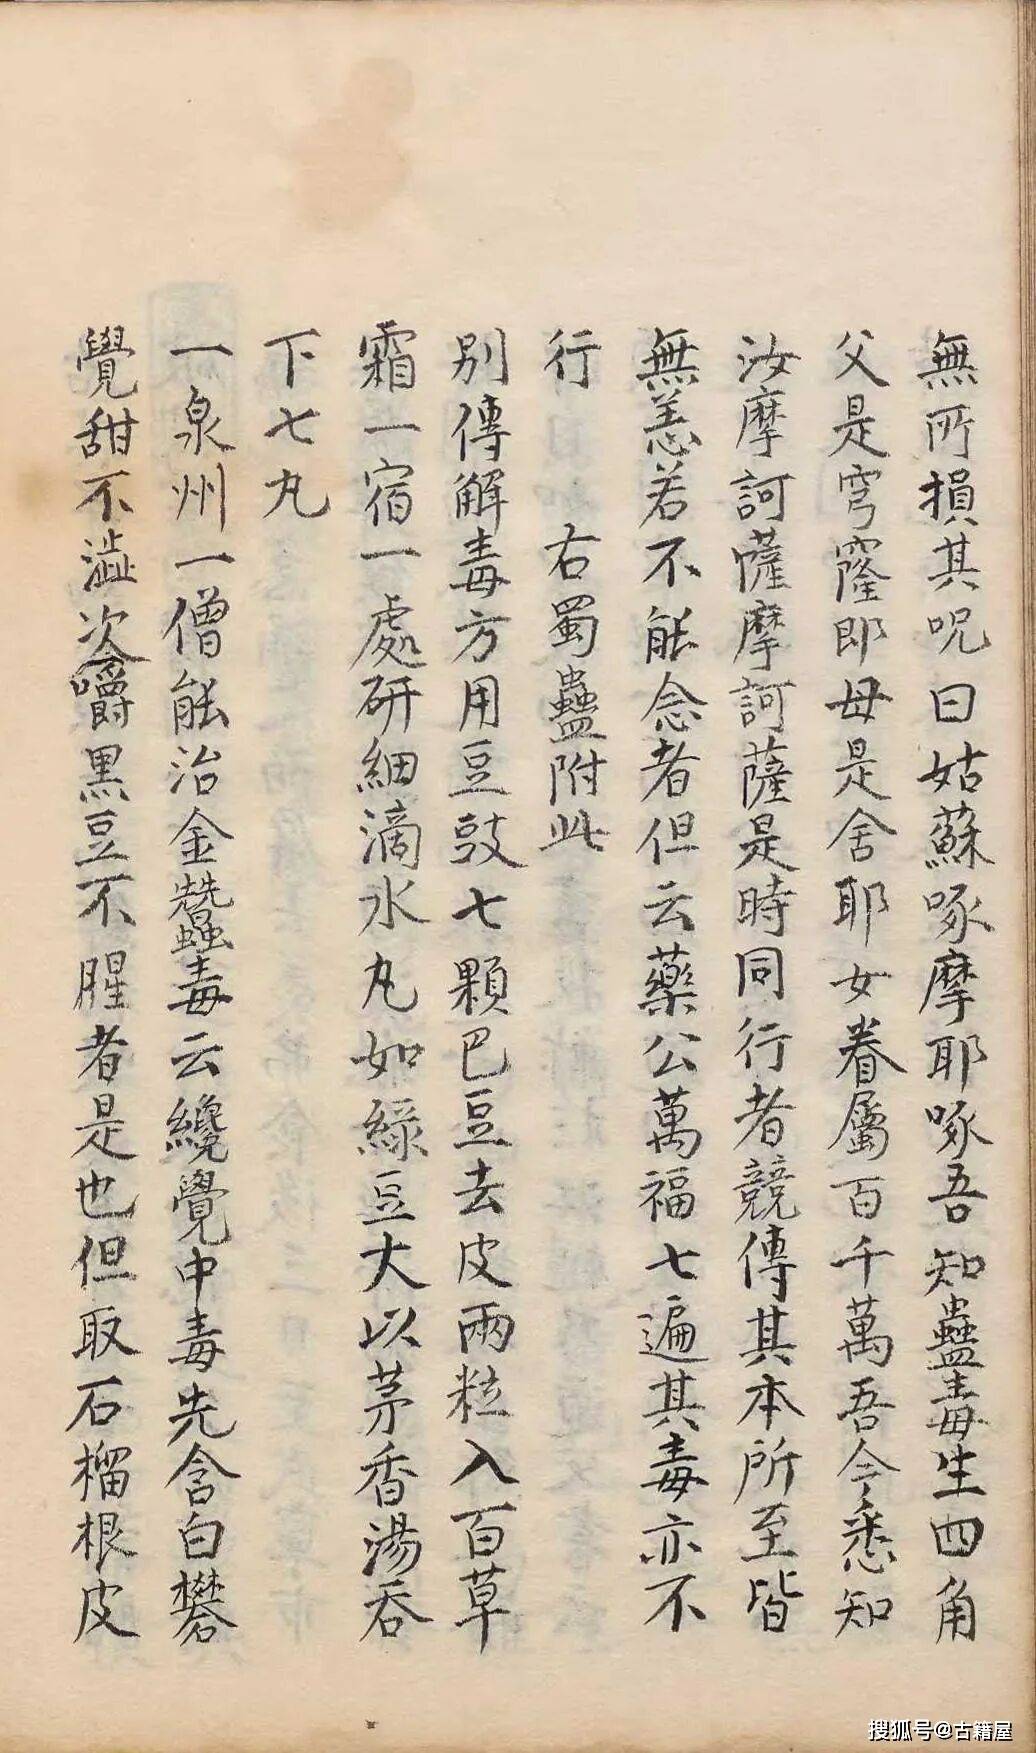 無所損其呪曰姑蘇啄摩耶啄吾知蠱毒生四角
父是穹窿即母是舍耶女眷屬百千萬吾今悉知
汝摩訶薩摩訶薩是時同行者競傳其本所至皆
無恙若不能念者但云藥公萬福七遍其毒亦不
行　　右蜀蠱附此
別傳解毒方用豆豉七顆巴豆去皮兩粒入百草
霜一宿一處研細滴水丸如綠豆大以茅香湯吞
下七丸
一泉州一僧能治金蠶毒云纔覺中毒先含白礬
覺甜不澁次嚼黑豆不腥者是也但取石榴根皮
搜狐号@古籍屋